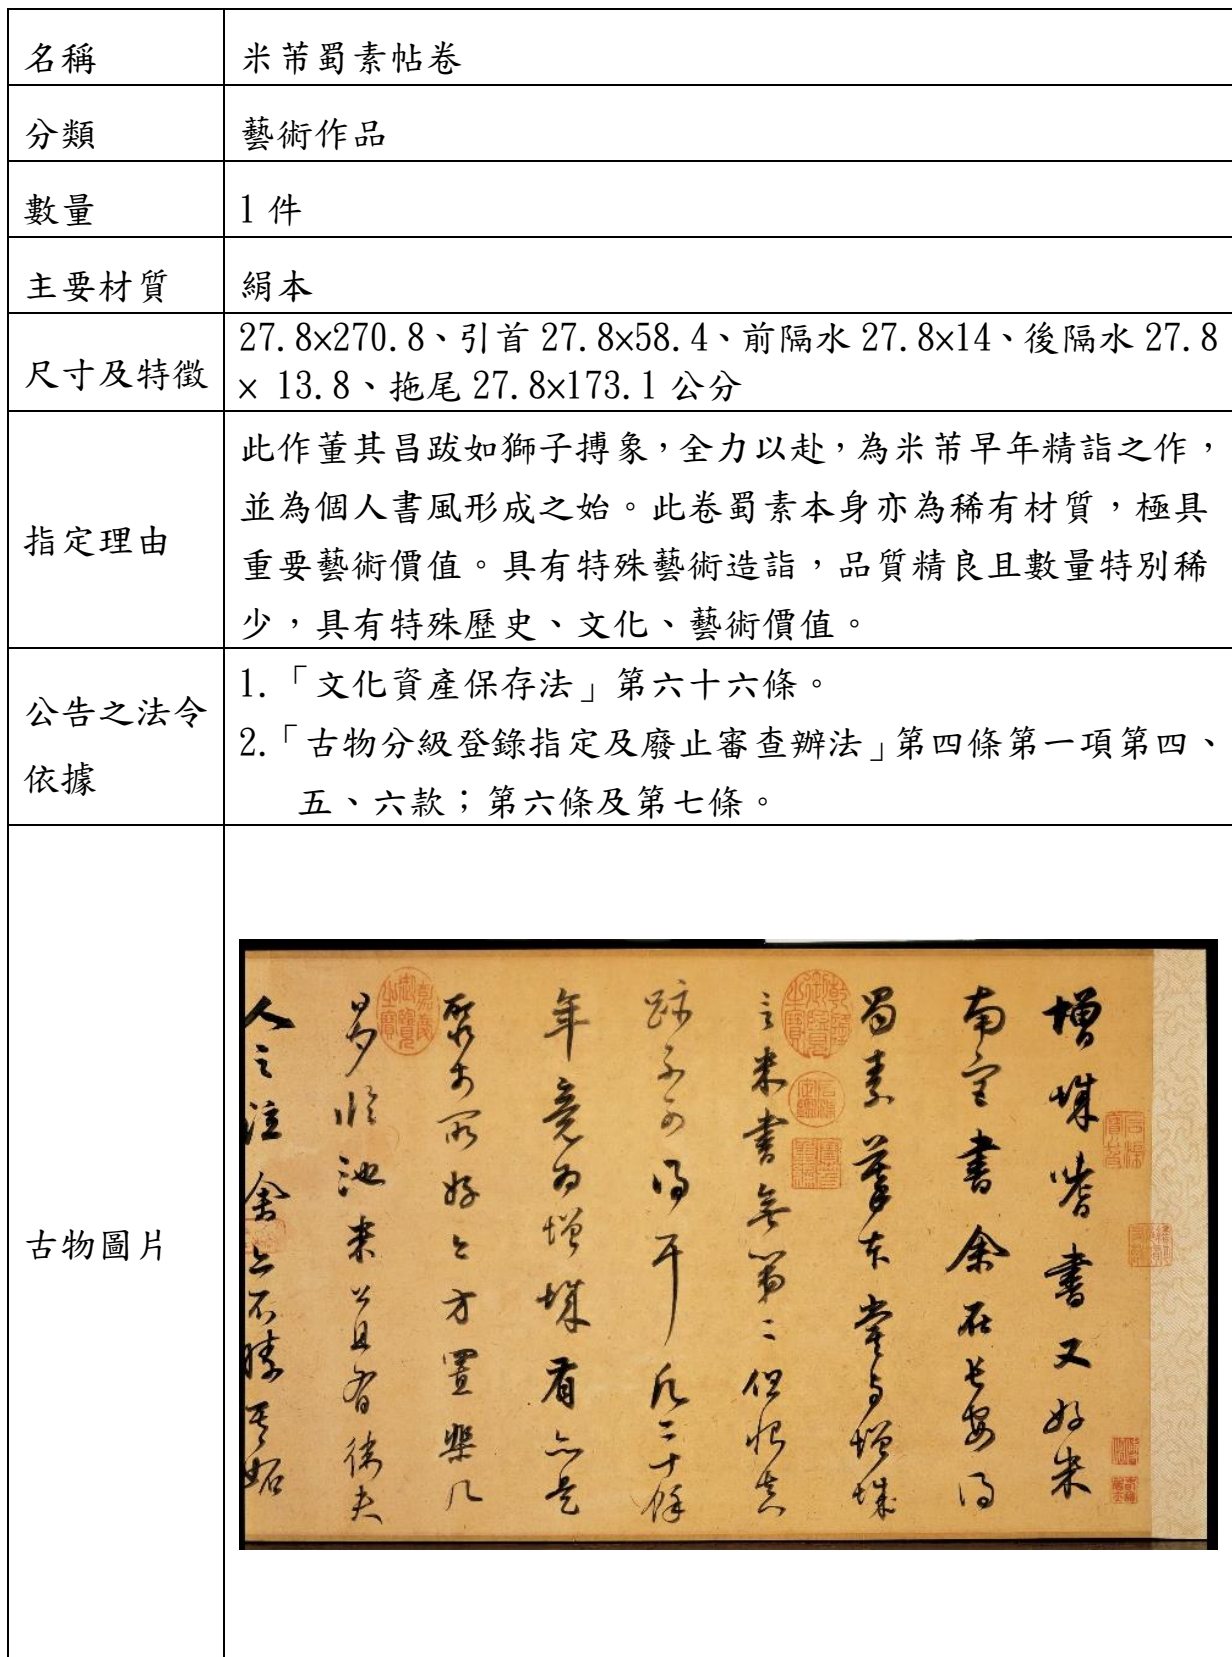 名稱
米芾蜀素帖卷
分類
藝術作品
數量
1 件
主要材質
絹本
尺寸及特徵
27.8×270.8、引首 27.8×58.4、前隔水 27.8×14、後隔水 27.8
× 13.8、拖尾 27.8×173.1 公分
指定理由
此作董其昌跋如獅子搏象，全力以赴，為米芾早年精詣之作，
並為個人書風形成之始。此卷蜀素本身亦為稀有材質，極具
重要藝術價值。具有特殊藝術造詣，品質精良且數量特別稀
少，具有特殊歷史、文化、藝術價值。
公告之法令
依據
1.「文化資產保存法」第六十六條。
2.「古物分級登錄指定及廢止審查辦法」第四條第一項第四、
五、六款；第六條及第七條。
古物圖片
增城嗜書又好米
南宮書余在長安得
蜀素摹本嘗與增城
言米書無第二但恨真
跡不可得耳凡二十餘
年竟為增城有亦是
聚於所好今方置棐几
日夕臨池米公且有衛夫
人之泣余亦不勝其妒
石渠寶笈
乾隆御覽之寶
嘉慶御覽之寶